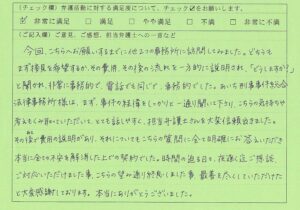 (チェック欄) 弁護活動に対する満足度について、チェック☑をお願いします。
☑ 非常に満足 □ 満足 □ やや満足 □ 不満 □ 非常に不満
(ご記入欄) ご意見、ご感想、担当弁護士への一言など
今回、こちらへお願いするまでに2つの事務所に訪問してみました。どちらも
まず接見を希望するか、その費用、その後の流れを一方的に説明され、「どうしますか?」
と聞かれ、非常に事務的で、電話でも同じで事務的でした。あいち刑事事件総合
法律事務所様は、まず、事件の経緯をしっかりと一通り聞いて下さり、こちらの気持ちや
考えもくみ取っていただいて、とても話しやすく、担当弁護士さんを大変信頼できました。
その後で費用の説明があり、それについてもこちらの質問に全て明確にお答えいただき
本当に全ての不安を解消した上での契約でした。時間の迫る中、夜遅くまでご相談、
ご対応いただけました事、こちらの望み通り終了しました事、最善を尽くしていただけた
と大変感謝しております。本当にありがとうございました。